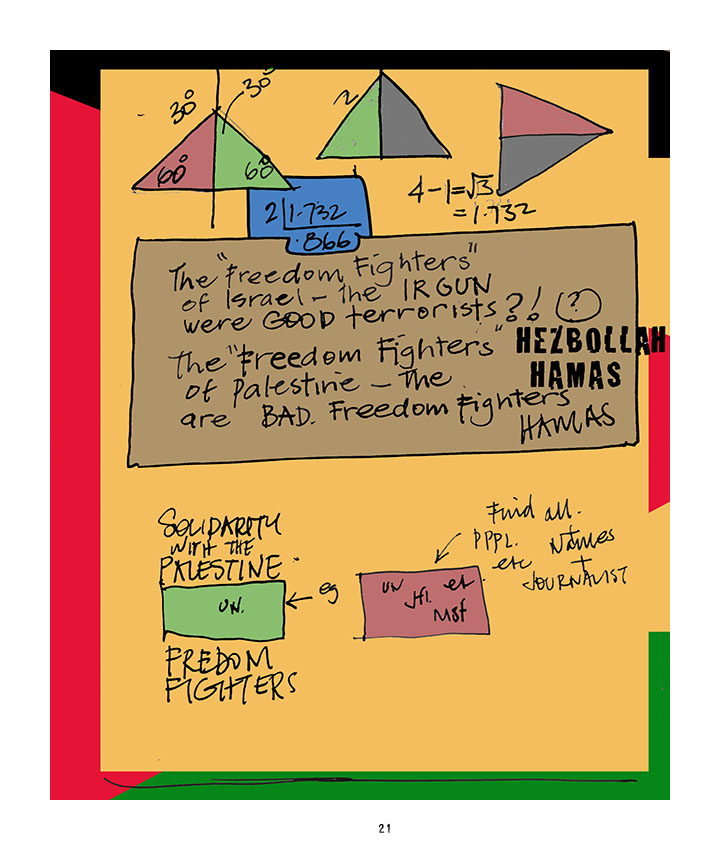 30° 30°
60° 60°
2
4-1=√3
=1.732
2|1.732
.866
The "Freedom Fighters"
of Israel — The IRGUN
were GOOD terrorists ?! (?)
The "Freedom Fighters" HEZBOLLAH
of Palestine — The HAMAS
are BAD. Freedom Fighters
HAMAS
SOLIDARITY
WITH THE
PALESTINE
UN.
eg
FREDOM
FIGHTERS
Find all.
PPPL. + NAMES
etc +
JOURNALIST
UN et
MSF
21